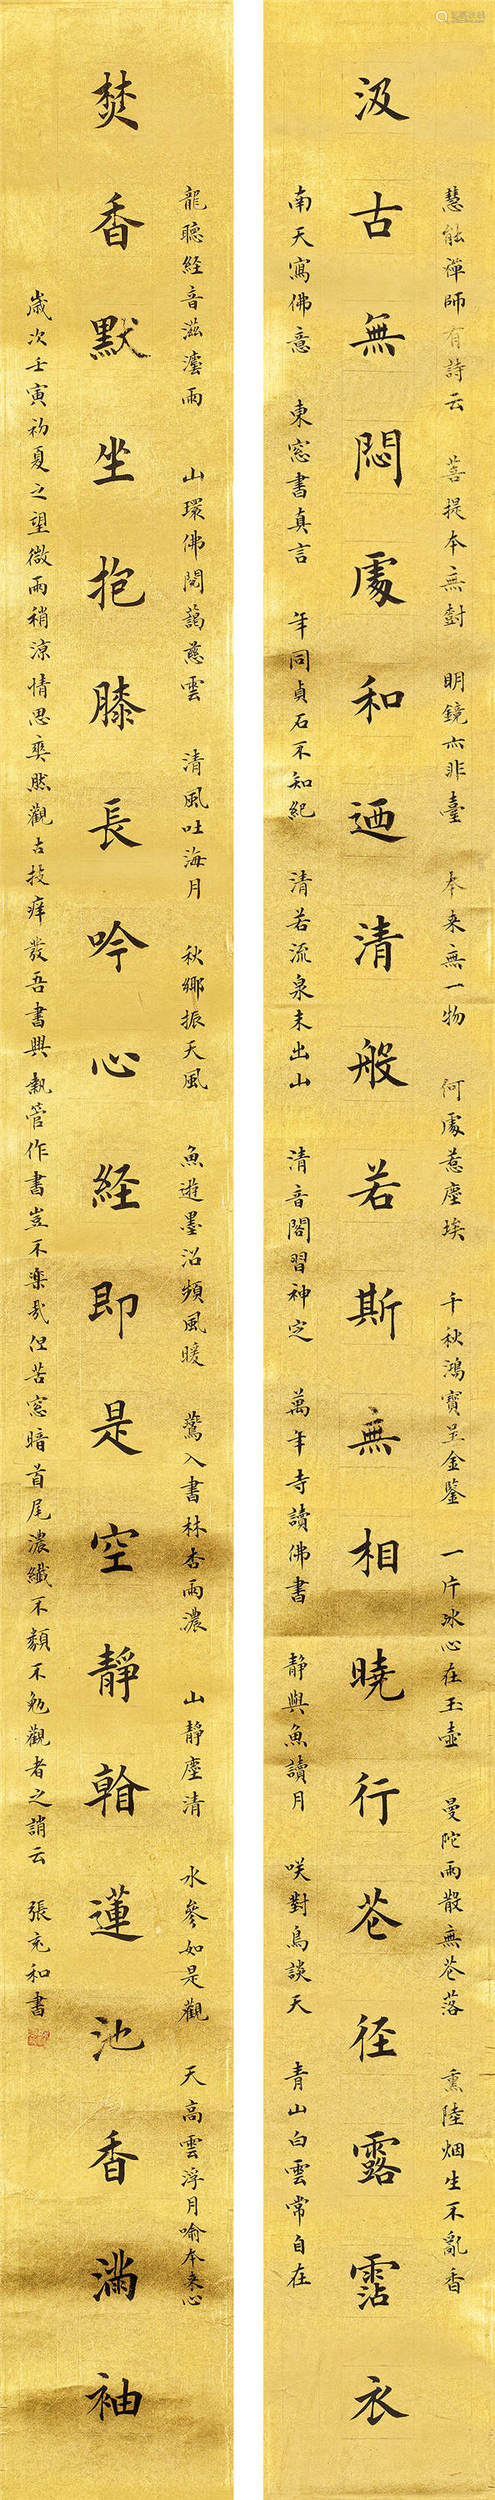 慧能禪師有詩云　菩提本無對　明鏡亦非臺　本来無一物　何處惹塵埃　千秋鴻寶呈金鑒　一片冰心在玉壺　曼陀雨散無花落　熏陸烟生不亂香
汲古無悶處和迺清般若斯無相曉行花径露霑衣
南天寫佛意　東窓書真言　年同貞石不知紀　清若流泉未出山　清音閣習神定　萬年寺讀佛書　静與魚讀月　咲對鳥談天　青山白雲常自在
龍聽経音滋澐雨　山環佛閣藹慈雲　清風吐海月　秋鄉振天風　魚遊墨沼頻風暖　鶯入書林杏雨濃　山靜塵清　水參如是觀　天高雲浮月喻本来心
焚香默坐抱膝長吟心経即是空靜翰蓮池香滿袖
歲次壬寅初夏之望微雨稍涼情思爽然觀古技痒發吾書興執管作書豈不樂哉但苦窓暗首尾濃纖不類不勉觀者之誚云　張充和書